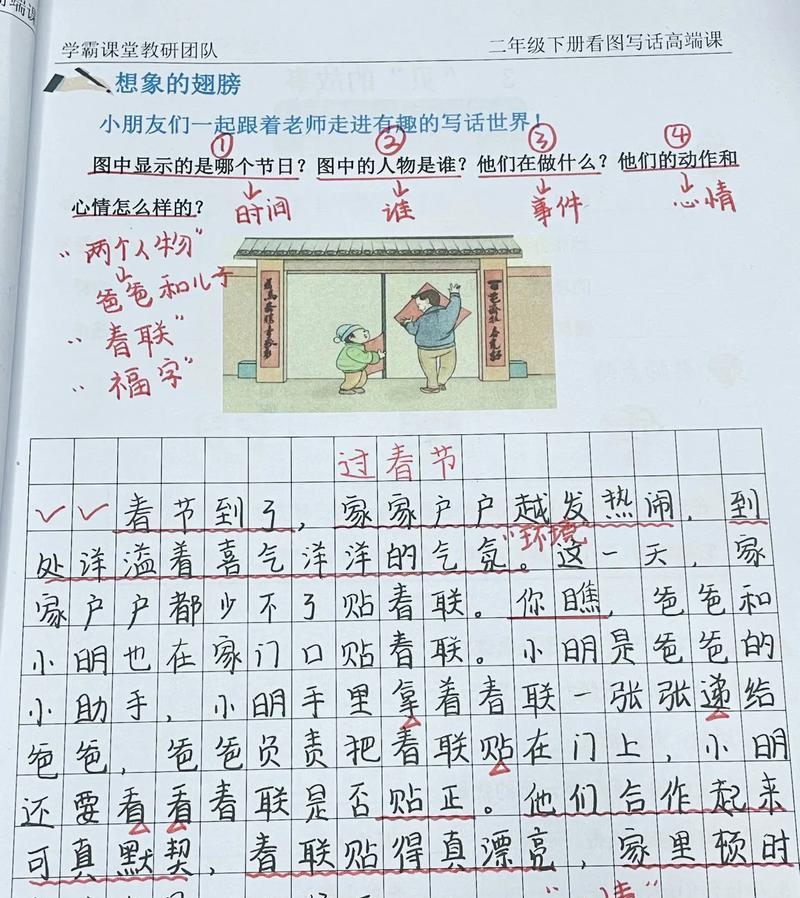 学霸课堂教研团队 二年级下册看图写话高端课
想象的翅膀
小朋友们一起跟着老师走进有趣的写话世界！
① ② ③ ④
图中显示的是哪个节日？图中的人物是谁？他们在做什么？他们的动作和
心情怎么样的？ 时间 谁 事件 心情
“两个人物”
爸爸和儿子
“春联”
“福字”
过春节
春节到了，家家户户越发热闹，到
处洋溢着喜气洋洋的气氛。这一天，家
“环境”
家户户都少不了贴春联。你瞧，爸爸和
小明也在家门口贴春联。小明是爸爸的
小助手，小明手里拿着春联一张张递给
爸爸，爸爸负责把春联贴在门上，小明
还要看看春联是否贴正。他们合作起来
可真默契，春联贴得真漂亮，家里顿时